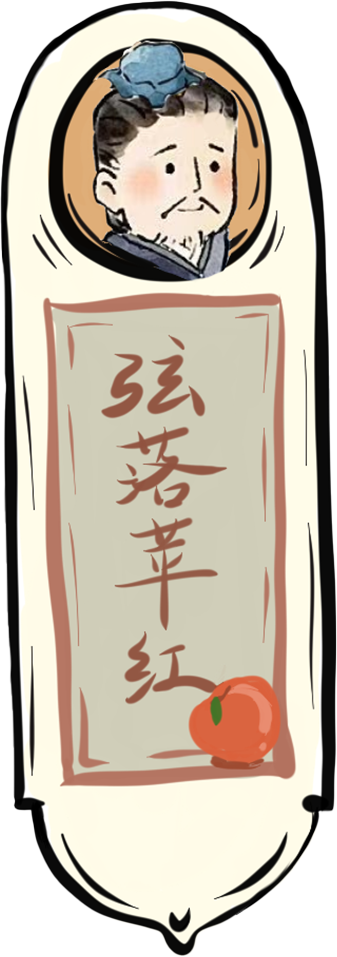 弦落苹红